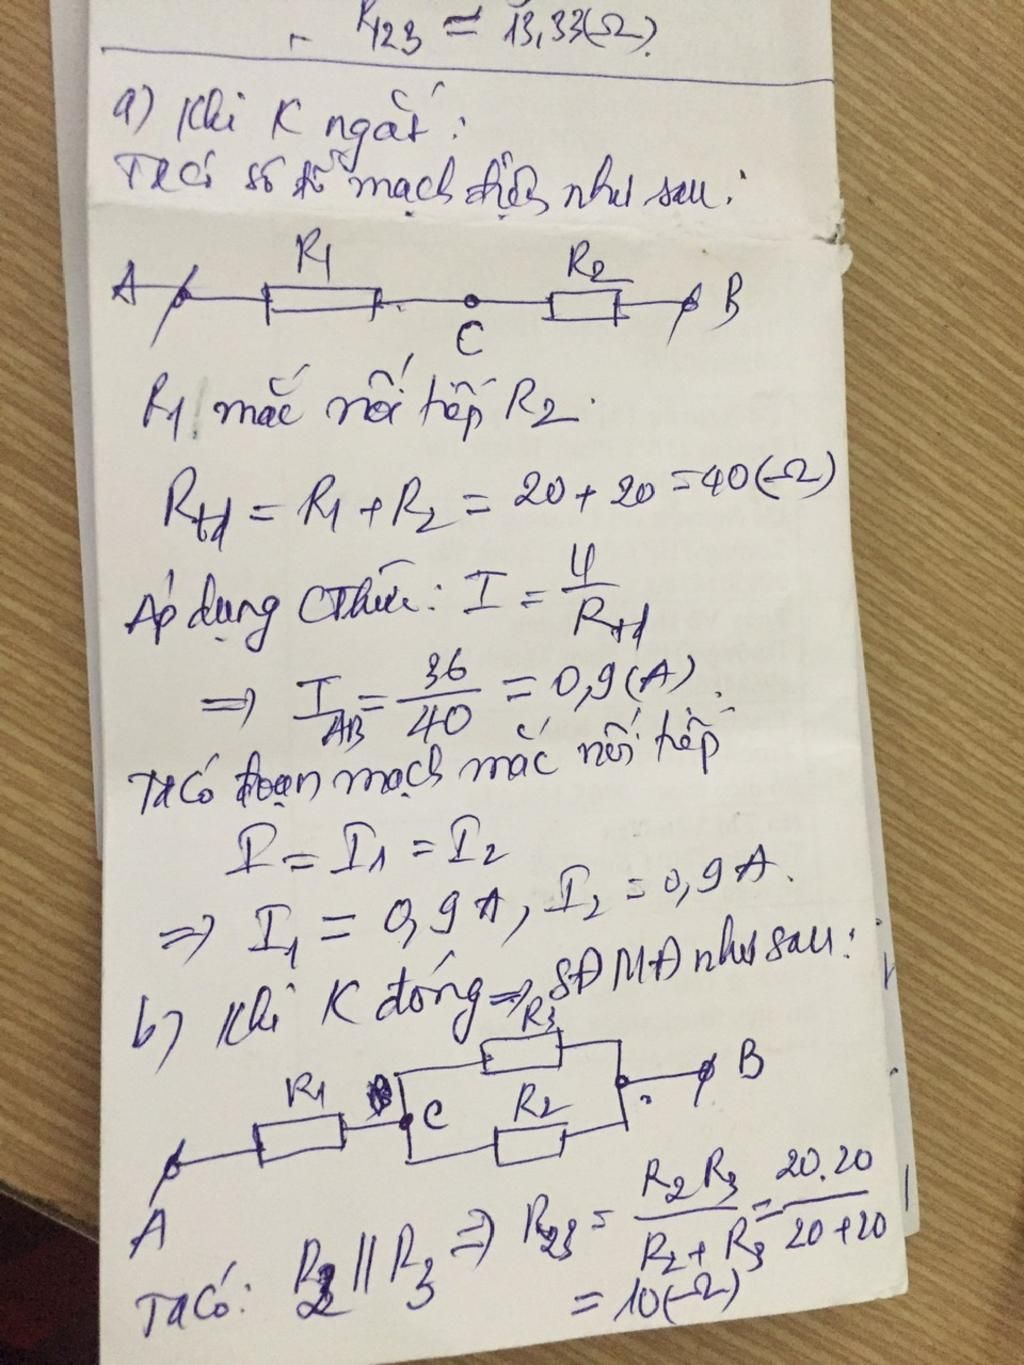 R123 = 13,33(Ω).
a) Khi K ngắt:
Ta có sơ đồ mạch điện như sau:
A R1 C R2 B
R1 mắc nối tiếp R2.
Rtđ = R1 + R2 = 20 + 20 = 40(Ω)
Áp dụng CThức: I = U/Rtđ
=> IAB = 36/40 = 0,9(A).
Ta có đoạn mạch mắc nối tiếp
I = I1 = I2
=> I1 = 0,9A, I2 = 0,9A.
b) Khi K đóng => SĐMĐ như sau:
R3
R1 C R2 B
A
Ta có: R2 // R3 => R23 = R2R3/R2+R3 = 20.20/20+20
= 10(Ω)